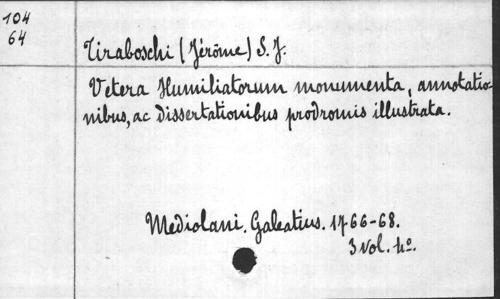 104
64
Tiraboschi (Jérôme) S. J.
Vetera Humiliatorum monumenta, annotatio-
nibus, ac dissertationibus prodromis illustrata.
Mediolani. Galeatius. 1766-68.
3 vol. 4º.